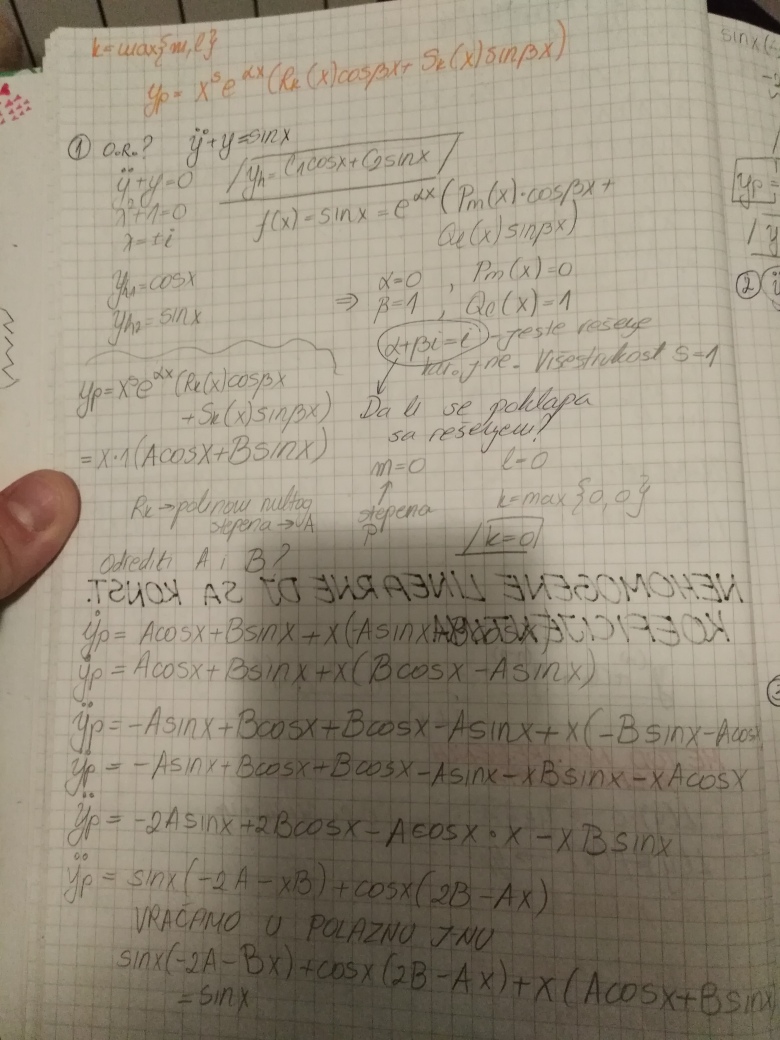 k=max{m,l}
yp= x^s e^αx (Rk(x)cosβx+ Sk(x)sinβx)
① O.R.? ÿ+y=sinx
ÿ+y=0
λ²+1=0
λ=±i
yh=C1cosx+C2sinx
f(x)=sinx=e^αx (Pm(x)·cosβx+
Ql(x)sinβx)
yh1=cosx
yh2=sinx
⇒ α=0 , Pm(x)=0
β=1 , Ql(x)=1
α+βi=i -jeste rešenje
kar. j-ne. Višestrukost s=1
Da li se poklapa
sa rešenjem?
yp=x^s e^αx (Rk(x)cosβx
+Sk(x)sinβx)
=x·1(Acosx+Bsinx)
m=0 l=0
stepena
P
k=max{0,0}
k=0
Rk→polinom nultog
stepena→A
Odrediti A i B?
NEHOMOGENE LINEARNE DJ SA KONST.
KOEFICIJENTIMA
ẏp= Acosx+Bsinx+x(Asinx
ẏp= Acosx+Bsinx+x(Bcosx-Asinx)
ÿp=-Asinx+Bcosx+Bcosx-Asinx+x(-Bsinx-Acosx
ÿp= -Asinx+Bcosx+Bcosx-Asinx-xBsinx-xAcosx
ÿp= -2Asinx+2Bcosx-Acosx·x-xBsinx
ÿp= sinx(-2A-xB)+cosx(2B-Ax)
VRAĆAMO U POLAZNU J-NU
sinx(-2A-Bx)+cosx(2B-Ax)+x(Acosx+Bsinx
=sinx
sinx(
yp=
②
③